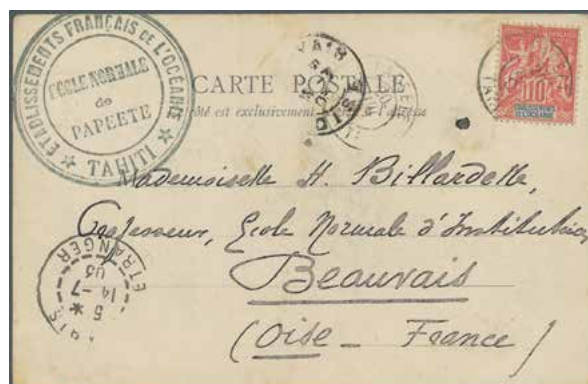 ÉTABLISSEMENTS FRANÇAIS DE L'OCÉANIE
ÉCOLE NORMALE
de
PAPEETE
★ TAHITI ★
CARTE POSTALE
côté est exclusivement à l'adresse
10
Mademoiselle H. Billardelle,
Professeur, École Normale d'Institutrices
Beauvais
(Oise - France)
ETRANGER
14 - 7
03
5 *
OISE